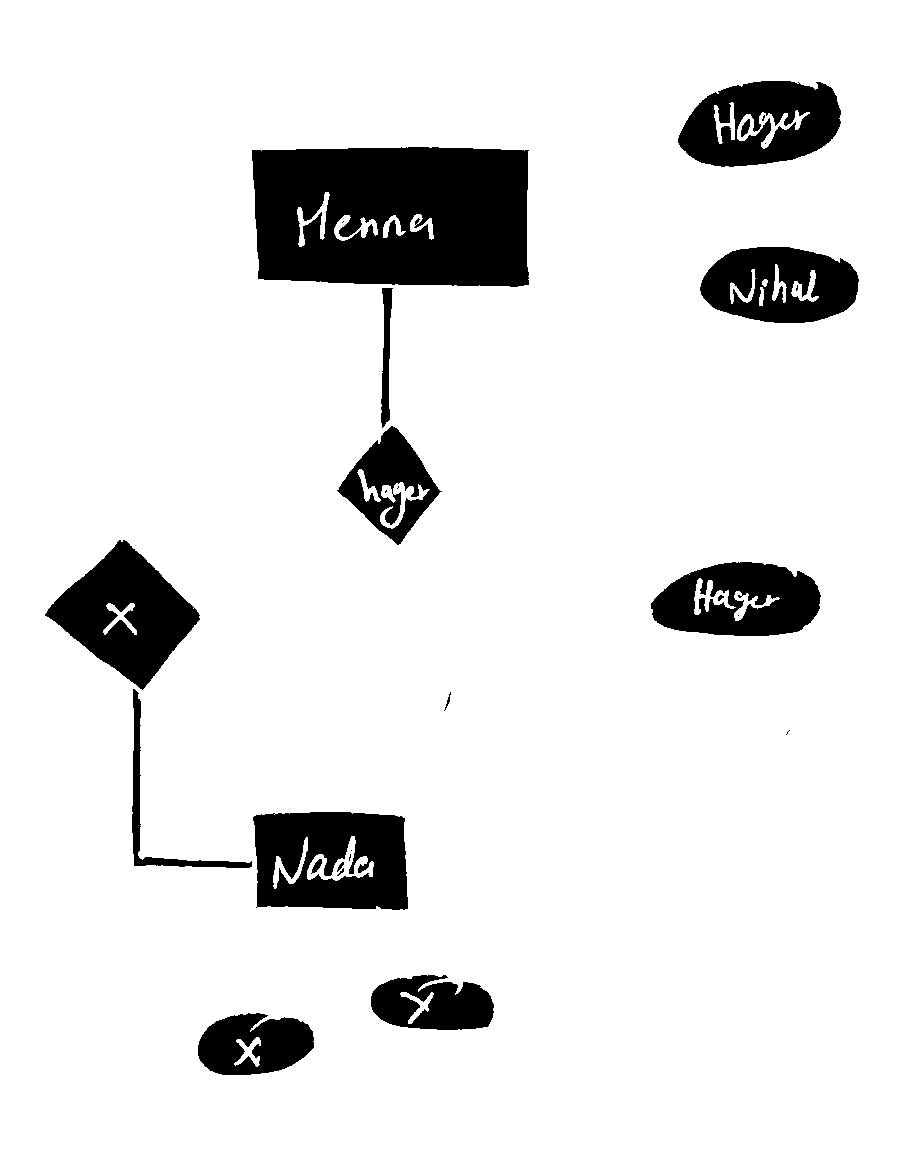 Hager
Menna
Nihal
hager
X
Hager
Nada
X
X